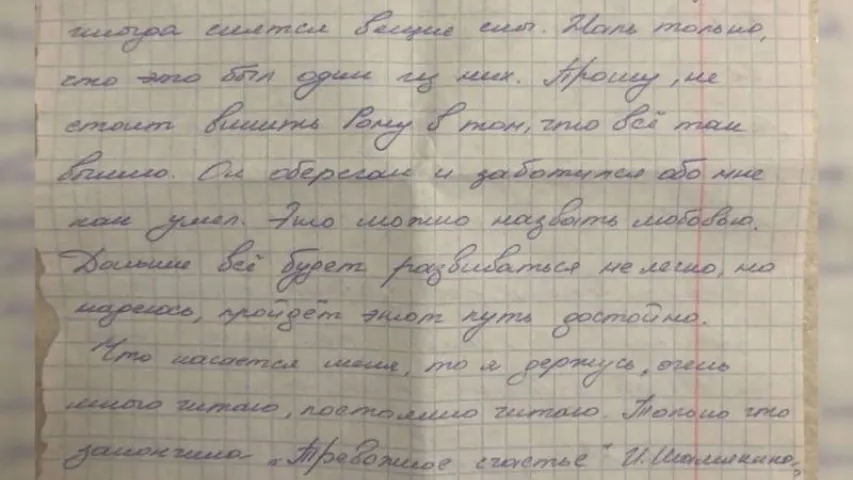 иногда снятся вещие сны. Жаль только,
что это был один из них. Прошу, не
стоит винить Рому в том, что всё так
вышло. Он оберегал и заботился обо мне
как умел. Это можно назвать любовью.
Дальше всё будет развиваться не легко, но
надеюсь, пройдёт этот путь достойно.
Что касается меня, то я держусь, очень
много читаю, постоянно читаю. Только что
закончила „Тревожное счастье" И. Шамякина,